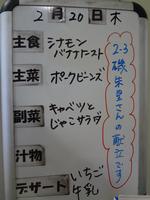 2月20日木
主食 シナモン
バナナトースト
主菜 ポークビーンズ
副菜 キャベツと
じゃこサラダ
汁物
デザート いちご
牛乳
2-3
磯朱里さんの献立です